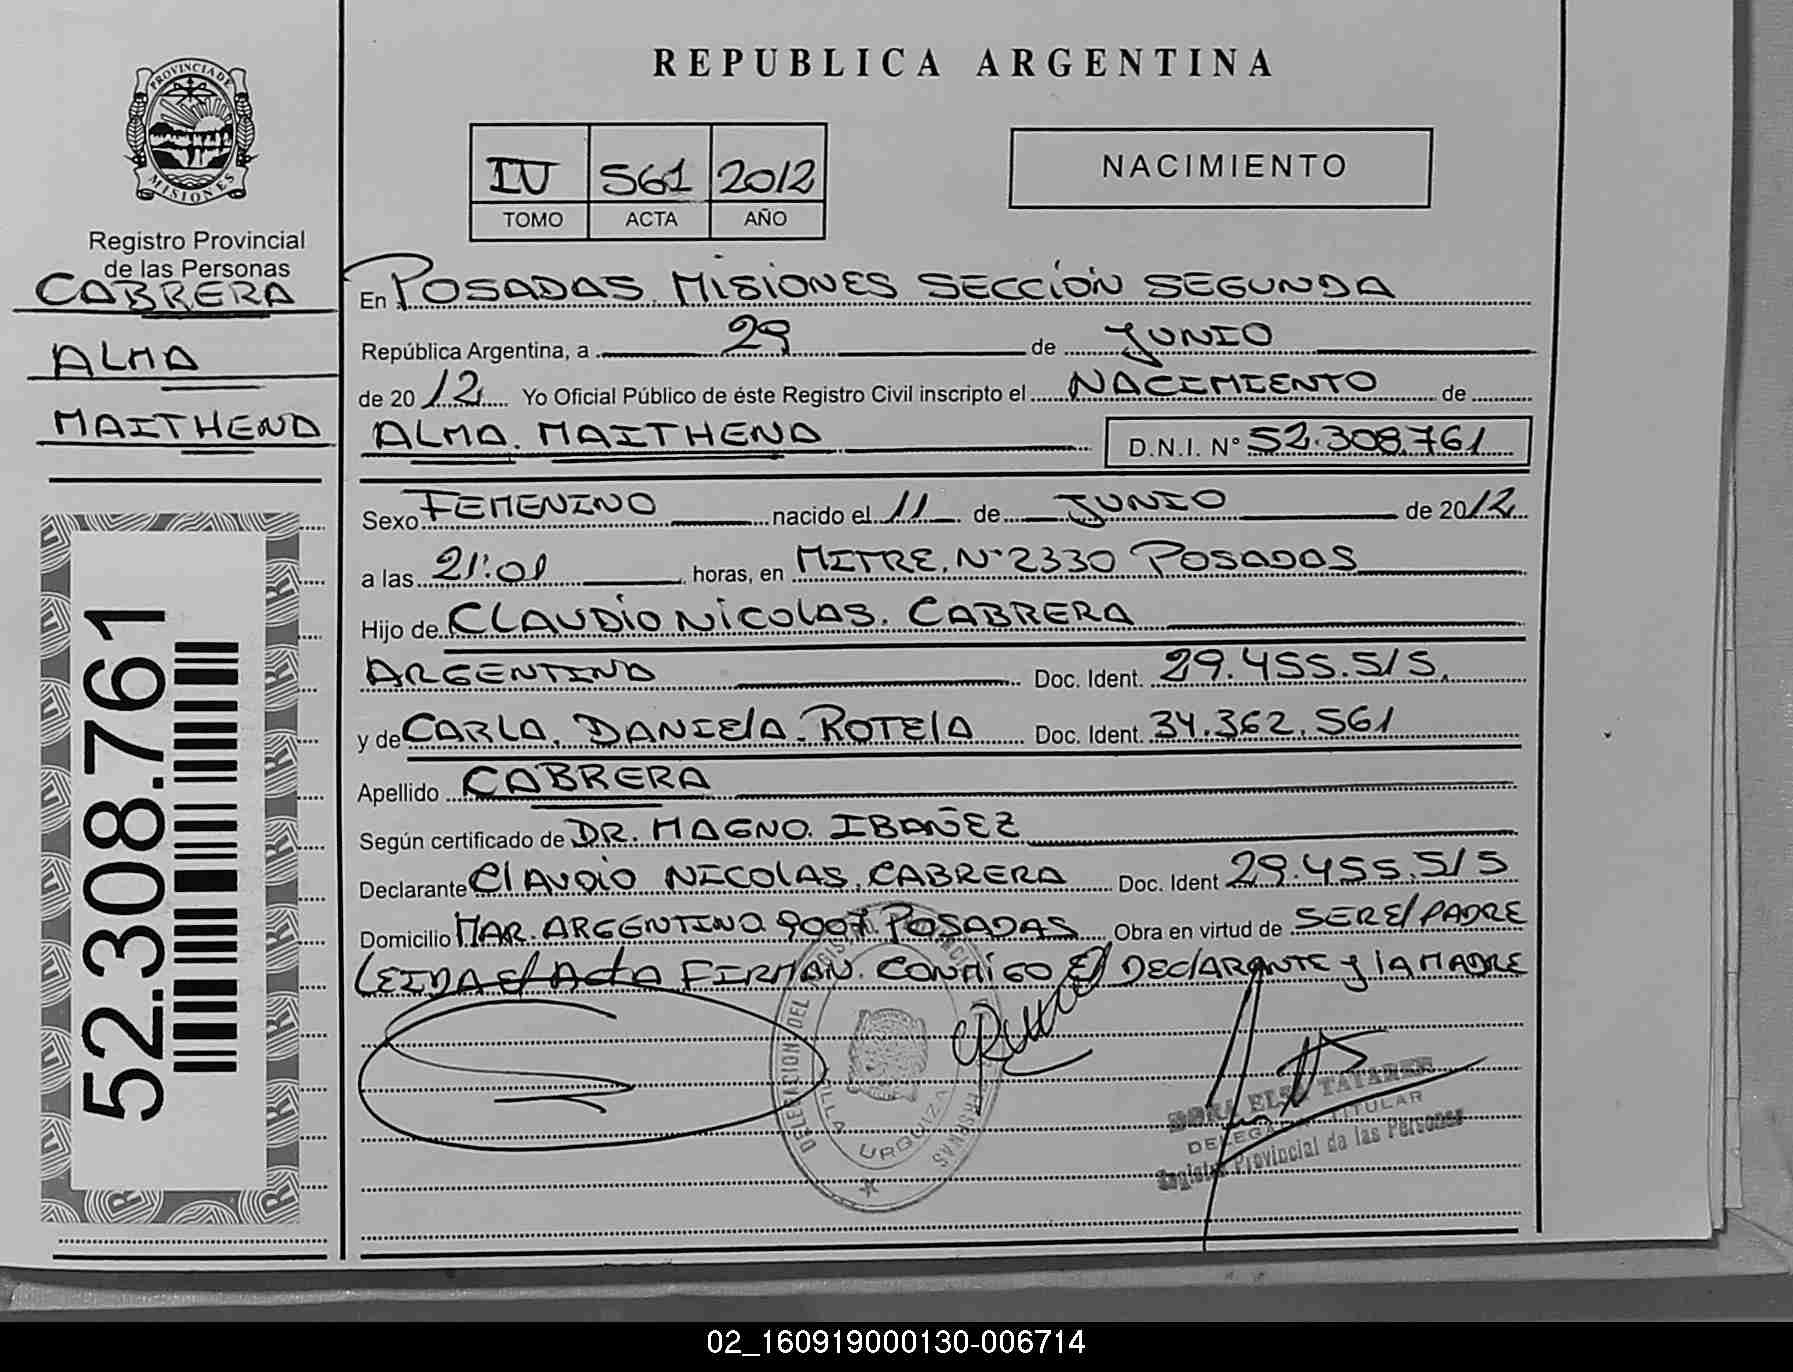 PROVINCIA DE
MISIONES
Registro Provincial
de las Personas
CABRERA
ALMA
MAITHENA
52.308.761
REPUBLICA ARGENTINA
IV 561 2012
TOMO ACTA AÑO
NACIMIENTO
En POSADAS. MISIONES SECCIÓN SEGUNDA
República Argentina, a 29 de JUNIO
de 2012 Yo Oficial Público de éste Registro Civil inscripto el NACIMIENTO de
ALMA. MAITHENA D.N.I. N° 52.308.761
Sexo FEMENINO nacido el 11 de JUNIO de 2012
a las 21:01 horas, en MITRE. N° 2330 POSADAS
Hijo de CLAUDIO NICOLAS. CABRERA
ARGENTINA Doc. Ident. 29.455.515.
y de CARLA. DANIELA. ROTELA Doc. Ident. 34.362.561
Apellido CABRERA
Según certificado de DR. MAGNO. IBAÑEZ
Declarante CLAUDIO NICOLAS. CABRERA Doc. Ident 29.455.515
Domicilio MAR. ARGENTINO 9007 POSADAS Obra en virtud de SER EL PADRE
LEIDA EL ACTA FIRMAN. CONMIGO El DECLARANTE y LA MADRE
DELEGACION DEL REGISTRO PROVINCIAL PERSONAS
VILLA URQUIZA
TITULAR
Registro Provincial de las Personas
02_160919000130-006714